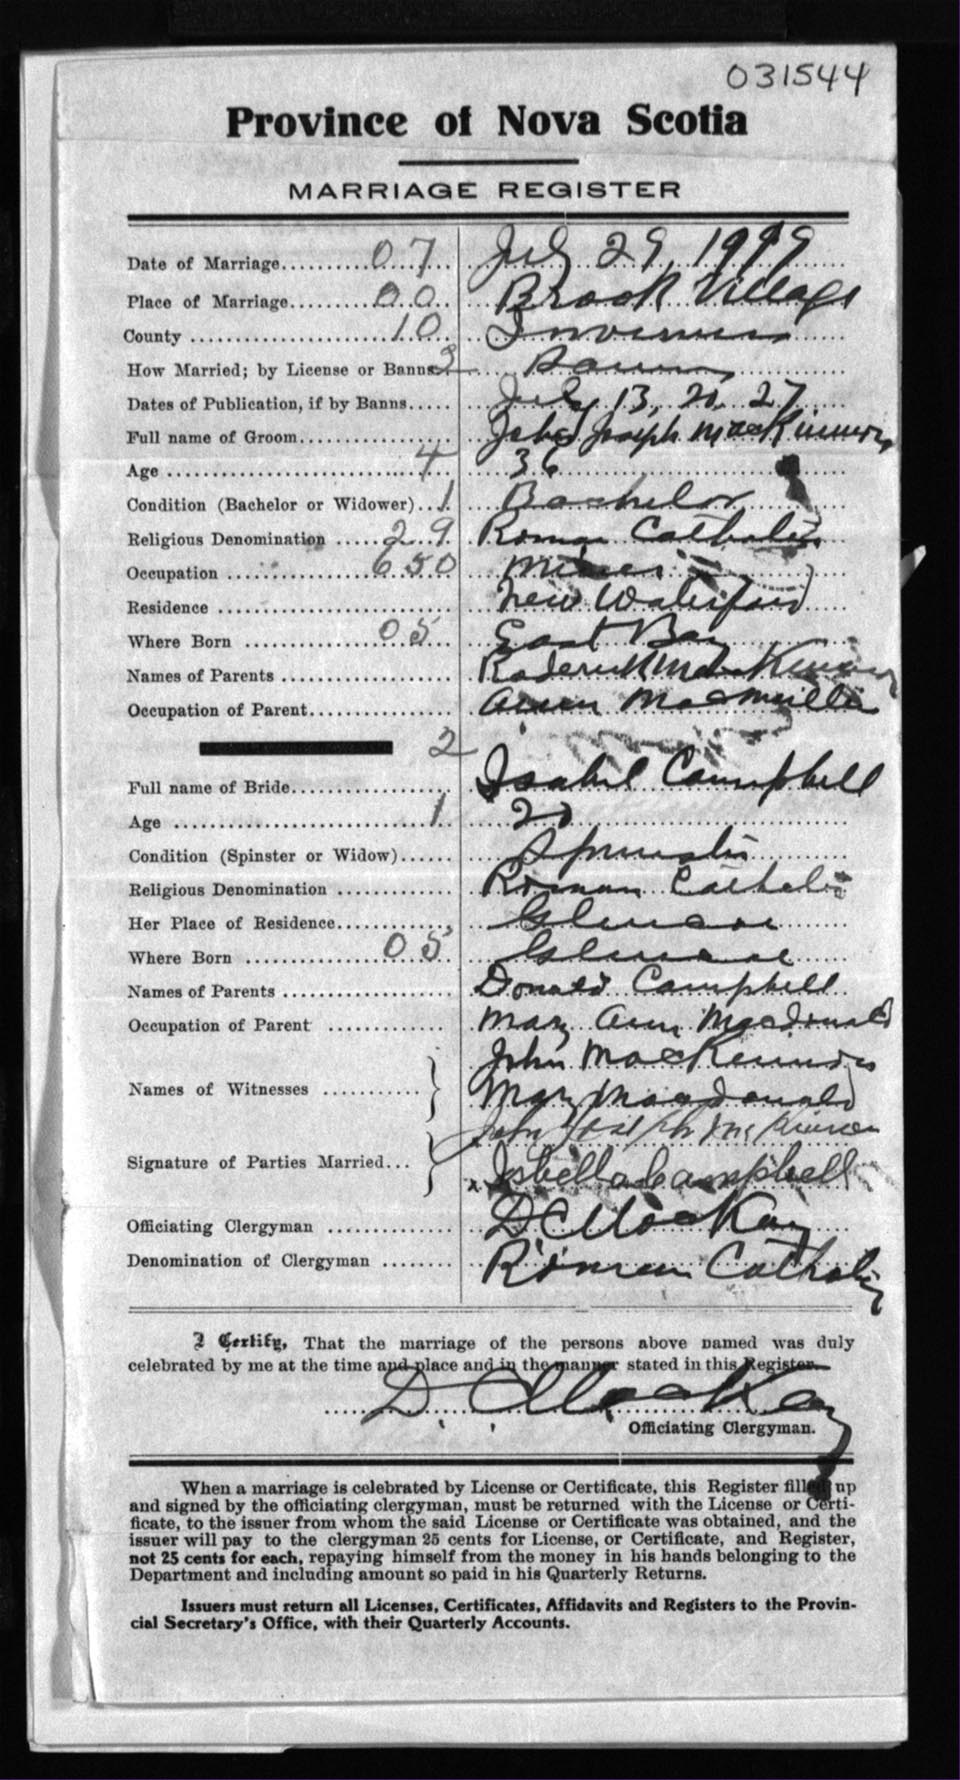 031544
Province of Nova Scotia
MARRIAGE REGISTER
Date of Marriage..........07.. July 29, 1919
Place of Marriage..........00.. Brook Village
County ..........10.. Inverness
How Married; by License or Banns 2 Banns
Dates of Publication, if by Banns..... July 13, 20, 27
Full name of Groom.......... Joseph MacKinnon
Age ..........4 36
Condition (Bachelor or Widower)..1. Bachelor
Religious Denomination .....29. Roman Catholic
Occupation ..........650 Miner
Residence .......... New Waterford
Where Born ..........05.. East Bay
Names of Parents .......... Roderick MacKinnon
Occupation of Parent.......... MacMillan
2
Full name of Bride.......... Isabel Campbell
Age ..........1
Condition (Spinster or Widow)...... Spinster
Religious Denomination .......... Roman Catholic
Her Place of Residence..........
Where Born ..........05.
Names of Parents .......... Donald Campbell
Occupation of Parent .......... Mary Ann MacDonald
John MacKinnon
Names of Witnesses .......... Mary MacDonald
John Joseph McKinnon
Signature of Parties Married... Isbella Campbell
Officiating Clergyman .......... D C MacKay
Denomination of Clergyman ........ Roman Catholic
I Certify, That the marriage of the persons above named was duly
celebrated by me at the time and place and in the manner stated in this Register.
D. C. MacKay
Officiating Clergyman.
When a marriage is celebrated by License or Certificate, this Register filled up
and signed by the officiating clergyman, must be returned with the License or Certi-
ficate, to the issuer from whom the said License or Certificate was obtained, and the
issuer will pay to the clergyman 25 cents for License, or Certificate, and Register,
not 25 cents for each, repaying himself from the money in his hands belonging to the
Department and including amount so paid in his Quarterly Returns.
Issuers must return all Licenses, Certificates, Affidavits and Registers to the Provin-
cial Secretary's Office, with their Quarterly Accounts.